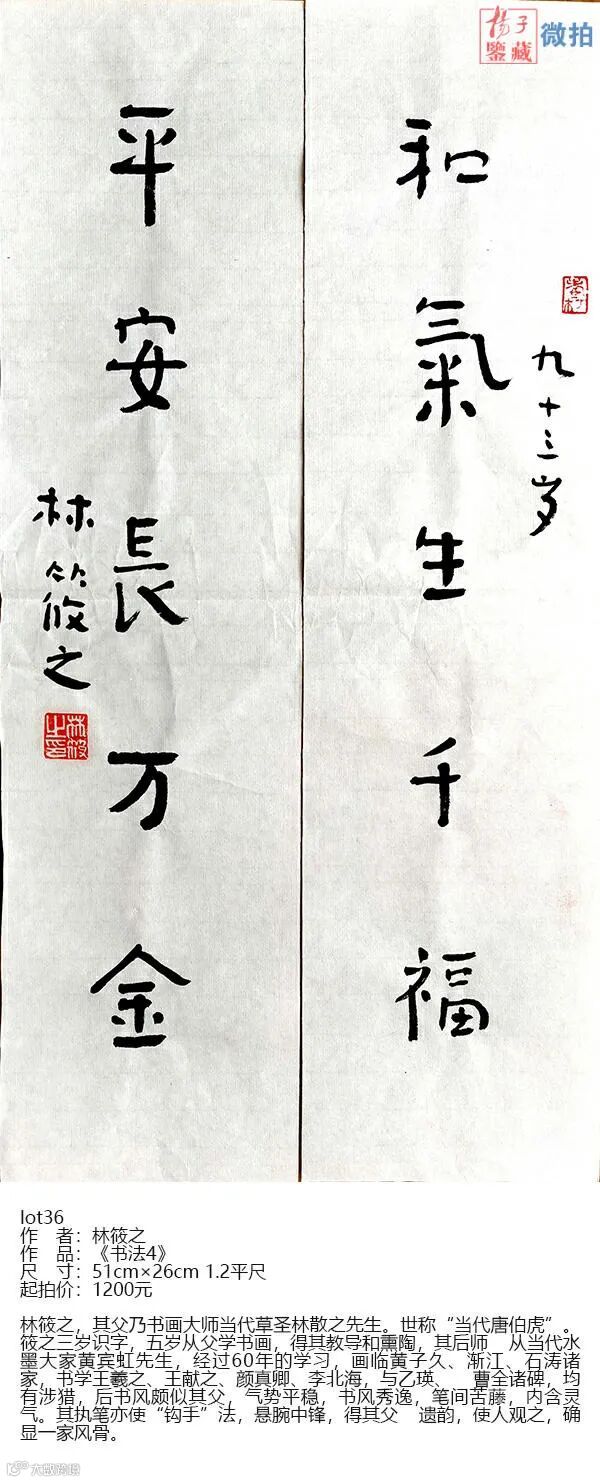 楊子
鑒藏
微拍
九十三岁
和氣生千福
平安長万金
林筱之
林筱之印
lot36
作 者：林筱之
作 品：《书法4》
尺 寸：51cm×26cm 1.2平尺
起拍价：1200元
林筱之，其父乃书画大师当代草圣林散之先生。世称“当代唐伯虎”。
筱之三岁识字，五岁从父学书画，得其教导和熏陶，其后师 从当代水
墨大家黄宾虹先生，经过60年的学习，画临黄子久、渐江、石涛诸
家，书学王羲之、王献之、颜真卿、李北海，与乙瑛、 曹全诸碑，均
有涉猎，后书风颇似其父，气势平稳，书风秀逸，笔间苦藤，内含灵
气。其执笔亦使“钩手”法，悬腕中锋，得其父 遗韵，使人观之，确
显一家风骨。
大数跨境